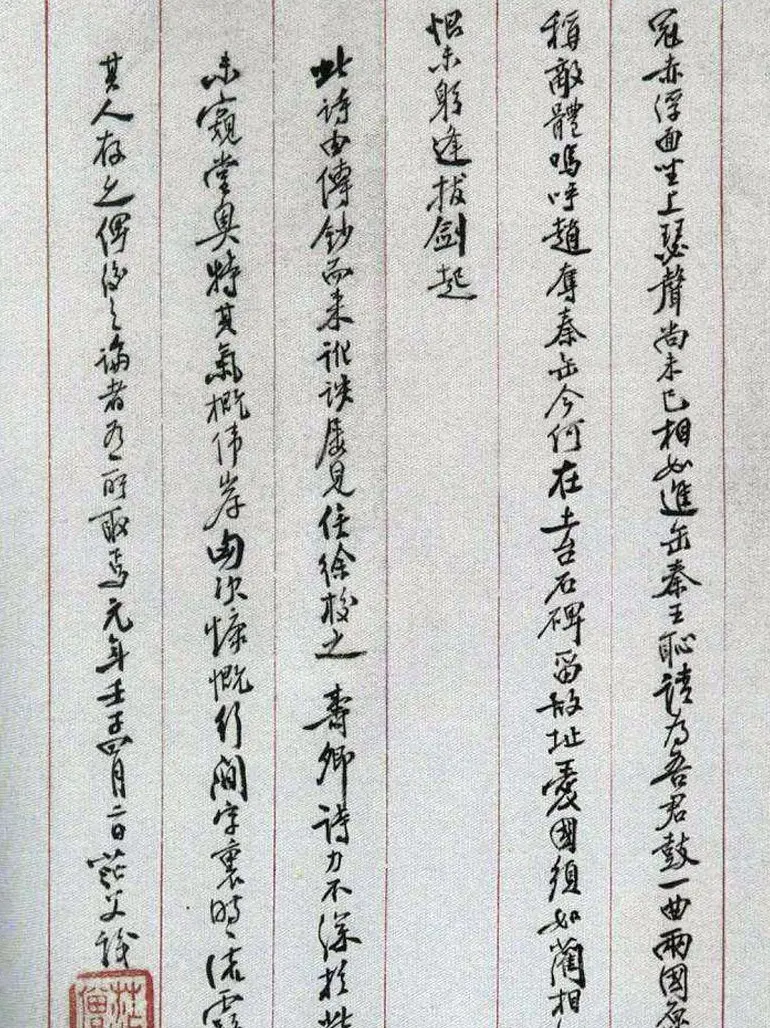 冠赤浮面坐上瑟聲尚未已相如進缶秦王恥請為吾君鼓一曲兩國原
稱敵體嗚呼趙奪秦缶今何在土台石碑留故址愛國須如藺相
恨未躬逢拔劍起
此詩由傳鈔而來訛誤屢見住徐校之壽卿詩力不深於此
未窺堂奥特其氣概偉岸胸次慷慨行間字裏時時流露
其人存之俾後之論者有所取焉元年壬子四月二日茫父識